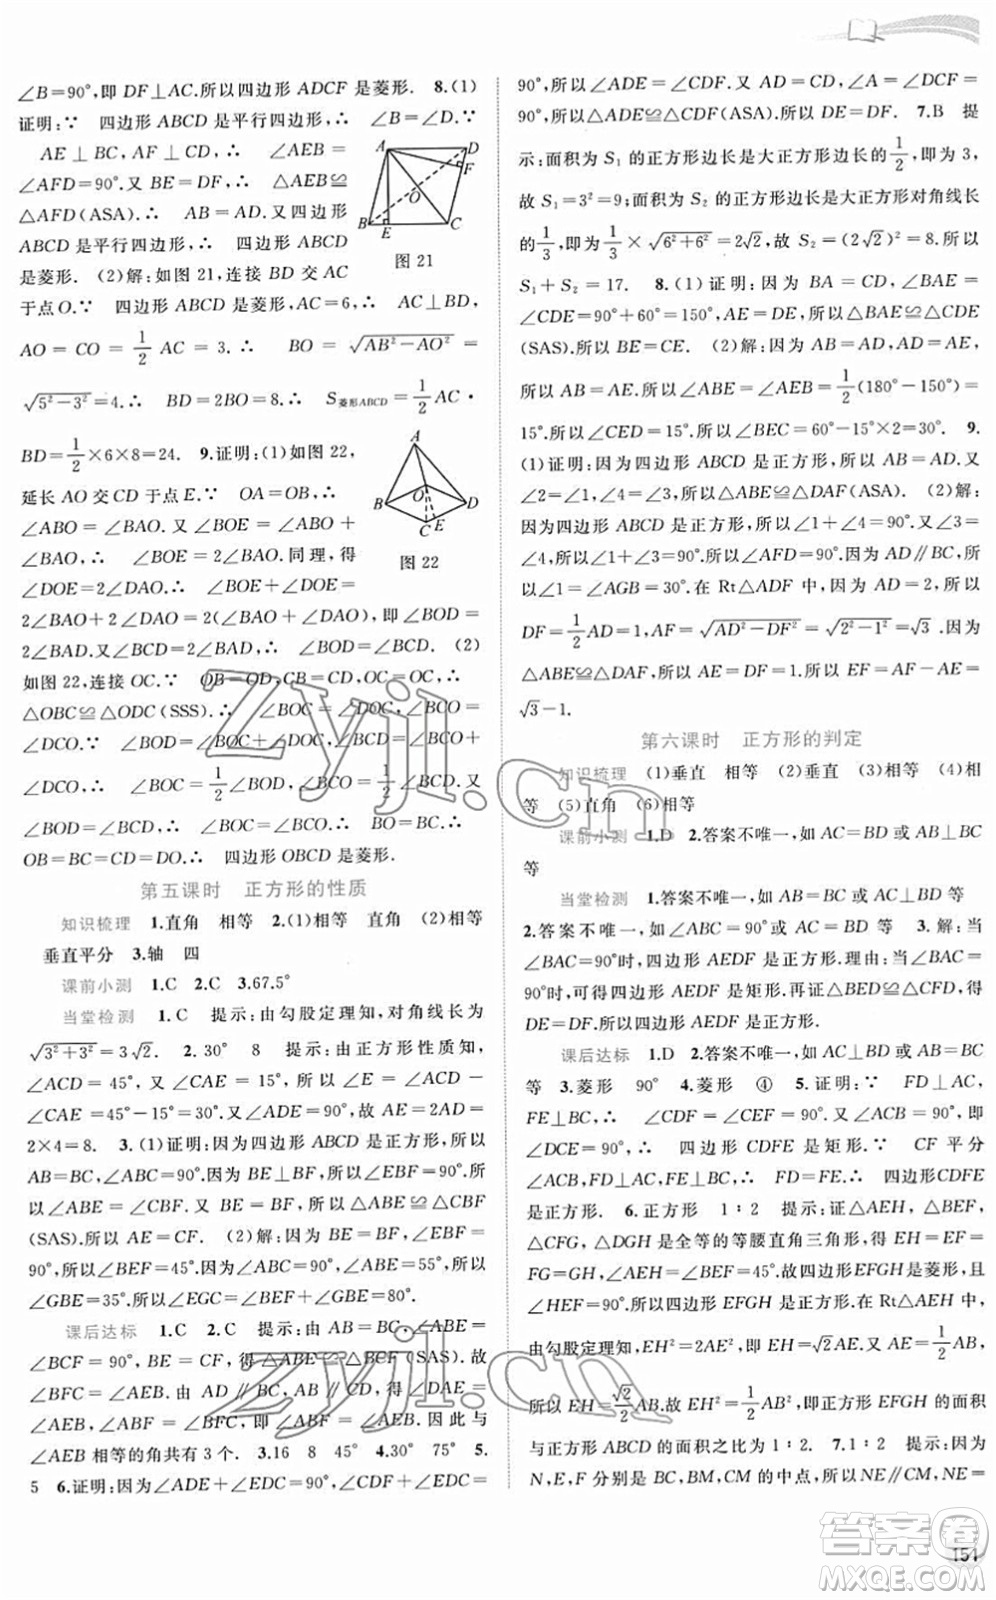 ∠B=90°,即 DF⊥AC.所以四边形 ADCF 是菱形. 8.(1)
证明:∵ 四边形 ABCD 是平行四边形,∴ ∠B=∠D.∵
AE⊥BC,AF⊥CD,∴ ∠AEB=
∠AFD=90°.又 BE=DF,∴ △AEB≌
△AFD(ASA).∴ AB=AD.∴ 四边形
ABCD 是平行四边形,∴ 四边形 ABCD
是菱形. (2)解:如图 21,连接 BD 交 AC
于点O.∵ 四边形 ABCD 是菱形,AC=6,∴ AC⊥BD,
AO=CO=1/2 AC=3.∴ BO=√(AB²-AO²)=
√(5²-3²)=4.∴ BD=2BO=8.∴ S菱形ABCD=1/2 AC·
BD=1/2×6×8=24. 9.证明:(1)如图 22,
延长 AO 交 CD 于点 E.∵ OA=OB,∴
∠ABO=∠BAO.又∠BOE=∠ABO+
∠BAO,∴ ∠BOE=2∠BAO.同理,得
∠DOE=2∠DAO.∴ ∠BOE+∠DOE=
2∠BAO+2∠DAO=2(∠BAO+∠DAO),即∠BOD=
2∠BAD.又∠BCD=2∠BAD,∴ ∠BOD=∠BCD. (2)
如图 22,连接 OC.∵ OB=OD,CB=CD,OC=OC,∴
△OBC≌△ODC(SSS).∴ ∠BOC=∠DOC,∠BCO=
∠DCO.∵ ∠BOD=∠BOC+∠DOC,∠BCD=∠BCO+
∠DCO,∴ ∠BOC=1/2∠BOD,∠BCO=1/2∠BCD.又
∠BOD=∠BCD,∴ ∠BOC=∠BCO.∴ BO=BC.∴
OB=BC=CD=DO.∴ 四边形 OBCD 是菱形.
A D F O B E C
图 21
A O B D C E
图 22
第五课时 正方形的性质
知识梳理 1.直角 相等 2.(1)相等 直角 (2)相等
垂直平分 3.轴 四
课前小测 1.C 2.C 3.67.5°
当堂检测 1.C 提示:由勾股定理知,对角线长为
√(3²+3²)=3√2. 2.30° 8 提示:由正方形性质知,
∠ACD=45°,又∠CAE=15°,所以∠E=∠ACD-
∠CAE=45°-15°=30°.又∠ADE=90°,故AE=2AD=
2×4=8. 3.(1)证明:因为四边形 ABCD 是正方形,所以
AB=BC,∠ABC=90°.因为 BE⊥BF,所以∠EBF=90°.所
以∠ABE=∠CBF.又 BE=BF,所以△ABE≌△CBF
(SAS).所以 AE=CF. (2)解:因为 BE=BF,∠EBF=
90°,所以∠BEF=45°.因为∠ABC=90°,∠ABE=55°,所以
∠GBE=35°.所以∠EGC=∠GBE+∠BEF=80°.
课后达标 1.C 2.C 提示:由 AB=BC,∠ABE=
∠BCF=90°,BE=CF,得△ABE≌△BCF(SAS).故
∠BFC=∠AEB.由 AD∥BC,得∠DAE=
∠AEB,∠ABF=∠BFC,即∠ABF=∠AEB.因此与
∠AEB 相等的角共有 3 个. 3.16 8 45° 4.30° 75° 5.
5 6.证明:因为∠ADE+∠EDC=90°,∠CDF+∠EDC=
90°,所以∠ADE=∠CDF.又 AD=CD,∠A=∠DCF=
90°,所以△ADE≌△CDF(ASA).所以 DE=DF. 7.B 提
示:面积为 S₁ 的正方形边长是大正方形边长的1/2,即为 3,
故 S₁=3²=9;面积为 S₂ 的正方形边长是大正方形对角线长
的1/3,即为1/3×√(6²+6²)=2√2.故 S₂=(2√2)²=8.所以
S₁+S₂=17. 8.(1)证明:因为 BA=CD,∠BAE=
∠CDE=90°+60°=150°,AE=DE,所以△BAE≌△CDE
(SAS).所以 BE=CE. (2)解:因为 AB=AD,AD=AE,
所以 AB=AE.所以∠ABE=∠AEB=1/2(180°-150°)=
15°.所以∠CED=15°.所以∠BEC=60°-15°×2=30°. 9.
(1)证明:因为四边形 ABCD 是正方形,所以 AB=AD.又
∠2=∠1,∠4=∠3,所以△ABE≌△DAF(ASA). (2)解:
因为四边形 ABCD 是正方形,所以∠1+∠4=90°.又∠3=
∠4,所以∠1+∠3=90°.所以∠AFD=90°.因为 AD∥BC,所
以∠1=∠AGB=30°.在 Rt△ADF 中,因为 AD=2,所以
DF=1/2AD=1,所以 AF=√(AD²-DF²)=√(2²-1²)=√3.因
为△ABE≌△DAF,所以 AE=DF=1.所以 EF=AF-AE=
√3-1.
第六课时 正方形的判定
知识梳理 (1)垂直 相等 (2)垂直 (3)相等 (4)相
等 (5)直角 (6)相等
课前小测 1.D 2.答案不唯一,如 AC=BD 或 AB⊥BC
等
当堂检测 1.答案不唯一,如 AB=BC 或 AC⊥BD 等
2.答案不唯一,如∠ABC=90°或 AC=BD 等 3.解:当
∠BAC=90°时,四边形 AEDF 是正方形.理由:∵ ∠BAC=
90°时,可得四边形 AEDF 是矩形.再证△BED≌△CFD,得
DE=DF.∴ 四边形 AEDF 是正方形.
课后达标 1.D 2.答案不唯一,如 AC⊥BD 或 AB=BC
等 3.菱形 90° 4.菱形 ④ 5.证明:∵ FD⊥AC,
FE⊥BC,∴ ∠CDF=∠CEF=90°.又∠ACB=90°,即
∠DCE=90°,∴ 四边形 CDFE 是矩形.∵ CF 平分
∠ACB,FD⊥AC,FE⊥BC,∴ FD=FE.∴ 四边形CDFE
是正方形. 6.正方形 1∶2 提示:证出△AEH,△BEF,
△CFG,△DGH 是全等的等腰直角三角形,所以 EH=EF=
FG=GH,∠AEH=∠BEF=45°.故四边形EFGH是菱形,且
∠HEF=90°.所以四边形 EFGH 是正方形.在 Rt△AEH 中,
由勾股定理知,EH²=2AE²,即 EH=√2AE.又 AE=1/2AB,
所以 EH=√2/2AB.故 EH²=1/2AB²,即正方形 EFGH 的面积
与正方形 ABCD 的面积之比为 1∶2. 7.1∶2 提示:因为
N,E,F 分别是 BC,BM,CM 的中点,所以 NE∥CM,NE=
zyjl.cn
zyjl.cn
答案圈
MXQE.COM
151